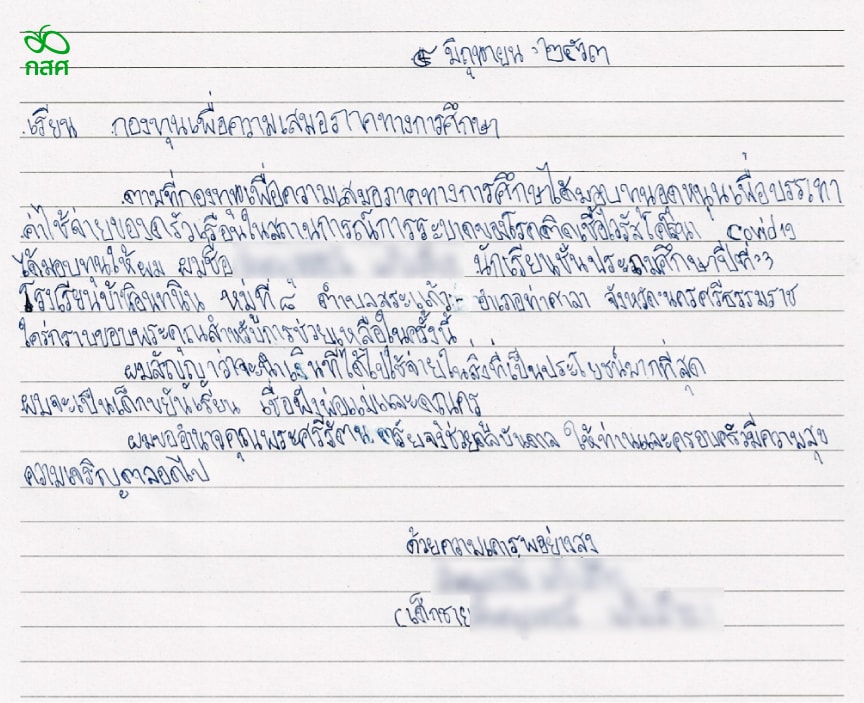 กสศ
๕ มิถุนายน ๒๕๖๓
เรียน กองทุนเพื่อความเสมอภาคทางการศึกษา
ตามที่กองทุนเพื่อความเสมอภาคทางการศึกษาได้มอบทุนอุดหนุนเพื่อบรรเทา
ค่าใช้จ่ายของครัวเรือนในสถานการณ์การระบาดของโรคติดเชื้อไวรัสโคโรนา Covid 19
ได้มอบทุนให้ผม ผมชื่อ นักเรียนชั้นประถมศึกษาปีที่ 3
โรงเรียนบ้านอินทนิน หมู่ที่ ๘ ตำบลสระแก้ว อำเภอท่าศาลา จังหวัดนครศรีธรรมราช
ใคร่กราบขอบพระคุณสำหรับการช่วยเหลือในครั้งนี้
ผมสัญญาว่าจะนำเงินที่ได้ไปใช้จ่ายในสิ่งที่เป็นประโยชน์มากที่สุด
ผมจะเป็นเด็กขยันเรียน เชื่อฟังพ่อแม่และคุณครู
ผมขออำนาจคุณพระศรีรัตนตรัยจงช่วยดลบันดาล ให้ท่านและครอบครัวมีความสุข
ความเจริญตลอดไป
ด้วยความเคารพอย่างสูง
(เด็กชาย